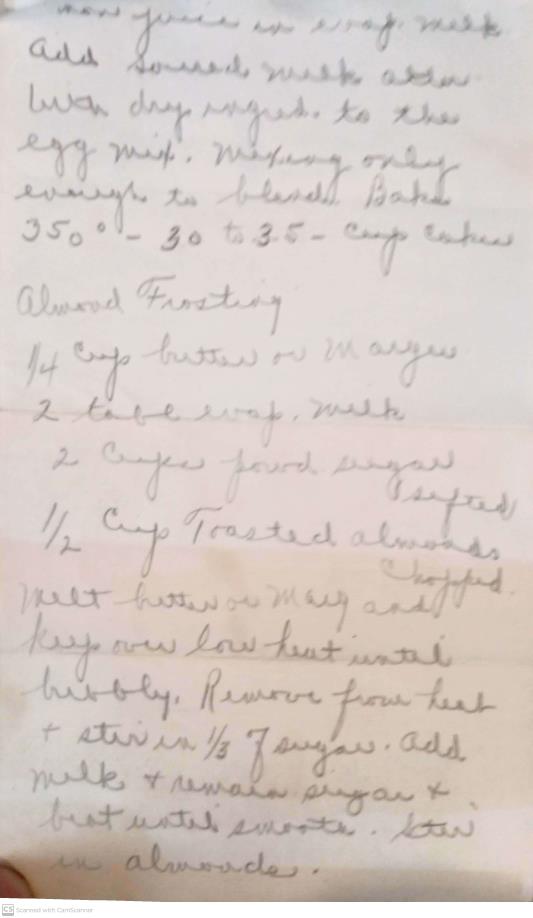 juice in evap. milk
Add soured milk alter
with dry ingred. to the
egg mix. Mixing only
enough to blend. Bake
350° - 30 to 35 - Cup cakes
Almond Frosting
1/4 Cup butter or Margie
2 table evap. milk
2 Cups powd sugar
sifted
1/2 Cup Toasted almonds
Chopped.
Melt butter or Marg and
keep over low heat until
bubbly. Remove from heat
+ stir in 1/3 of sugar. Add
milk + remain sugar +
beat until smooth. Stir
in almonds.
CS Scanned with CamScanner